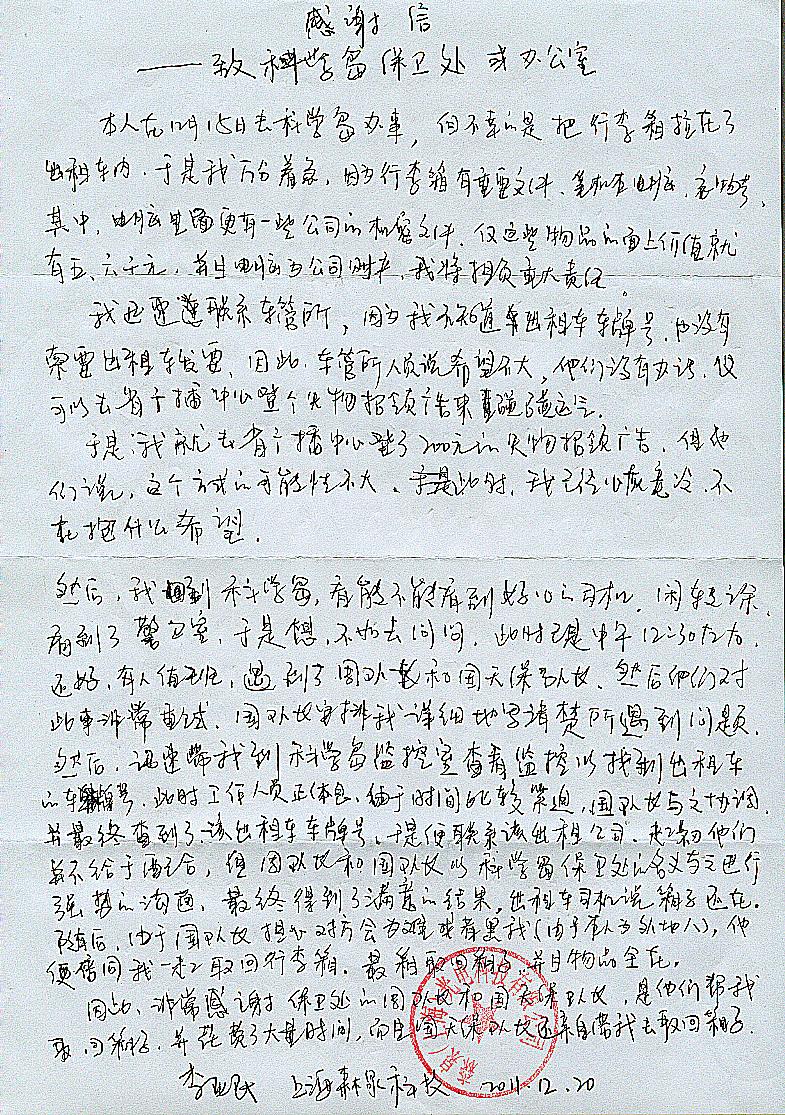 感谢信
——致科学岛保卫处或办公室
本人在12月15日去科学岛办事，但不幸的是把行李箱拉在了
出租车内。于是我万分着急，因为行李箱有重要文件、笔记本电脑、衣物等，
其中，电脑里面更有一些公司的机密文件。仅这些物品的面上价值就
有五、六千元，并且电脑为公司财产，我将担负重大责任。
我迅速联系车管所，因为我不知道出租车车牌号，也没有
索要出租车发票，因此，车管所人员说希望不大，他们没有办法，仅
可以去省广播中心登个失物招领广告来碰碰运气。
于是，我就去省广播中心登了200元的失物招领广告，但他
们说，这个方式的可能性不大。此时，我已经心灰意冷，不
在抱什么希望。
然后，我回到科学岛，看能不能看到好心的司机，闲转之余，
看到了警卫室，于是想，不如去问问，此时已是中午12:30左右。
还好，有人值班，遇到了周队长和周天保队长，然后他们对
此事非常重视，周队长安排我详细地写清楚所遇到问题。
然后，迅速带我到科学岛监控室查看监控以找到出租车
的车牌号，此时工作人员正休息，由于时间比较紧迫，周队长与之协调，
并最终查到了该出租车车牌号。于是便联系该出租公司，起初他们
并不给于配合，但周队长和周队长以科学岛保卫处的名义与之进行
强势的沟通，最终得到了满意的结果，出租车司机说箱子还在。
随后，由于周队长担心对方会为难或者黑我（由于本人为外地人），他
便陪同我一起取回行李箱。最终取回箱子，并且物品全在。
因此，非常感谢保卫处的周队长和周天保队长，是他们帮我
取回箱子，并花费了大量时间，而且周天保队长还亲自带我去取回箱子。
李 民 上海森泉科技 2011.12.20
森泉（上海）光电科技有限公司